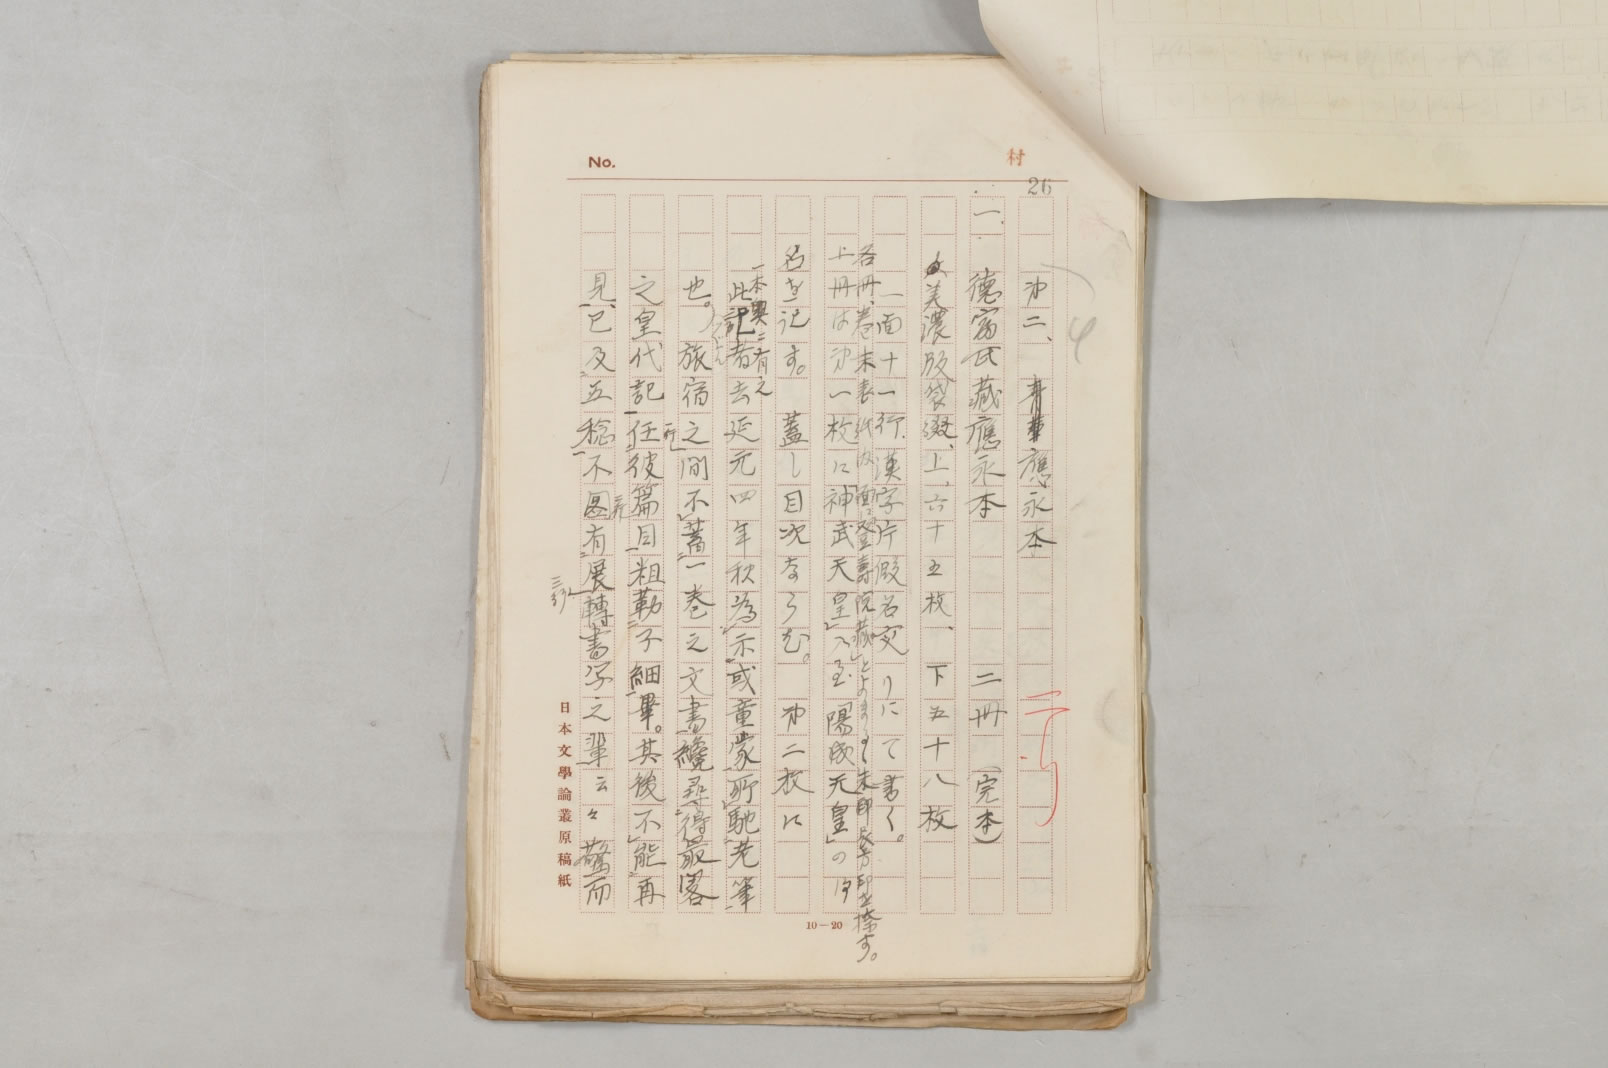 No.
村
26
第二、應永本
一、德富氏藏應永本 二冊 (完本)
美濃版袋綴、上、六十五枚、下五十八枚
一面十一行、漢字片假名交りにて書く。
各冊、巻末表紙内面に「登壽院藏」とよまるゝ朱印長方印を捺す。
上冊は第一枚に「神武天皇」乃至「陽成天皇」の御
名を記す。蓋し目次ならむ。第二枚に
一本奥ニ有之
此記者去延元四年秋為示或童蒙所馳老筆
也。旅宿之間不蓄一巻之文書纔尋得最略
之皇代記任彼篇目粗勒子細畢。其後不能再
見、已及五稔不圖有展轉書写之輩云々驚而
日本文學論叢原稿紙
10—20